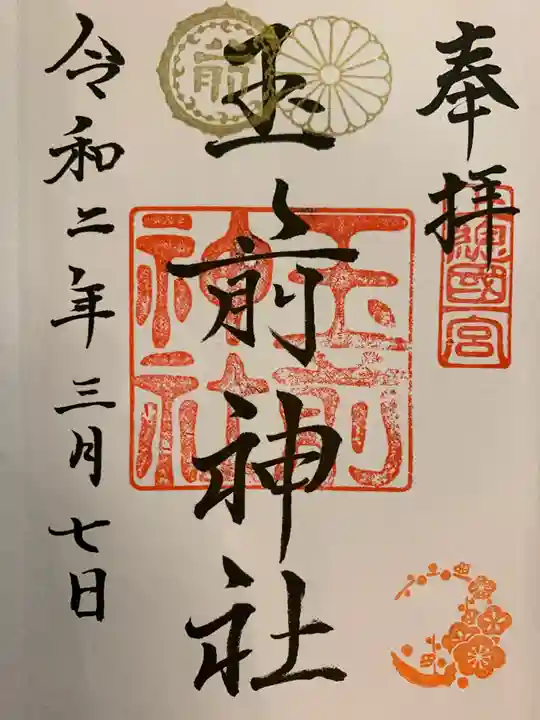 奉拝
上總國一宮
玉前神社
玉前神社
前
令和二年三月七日